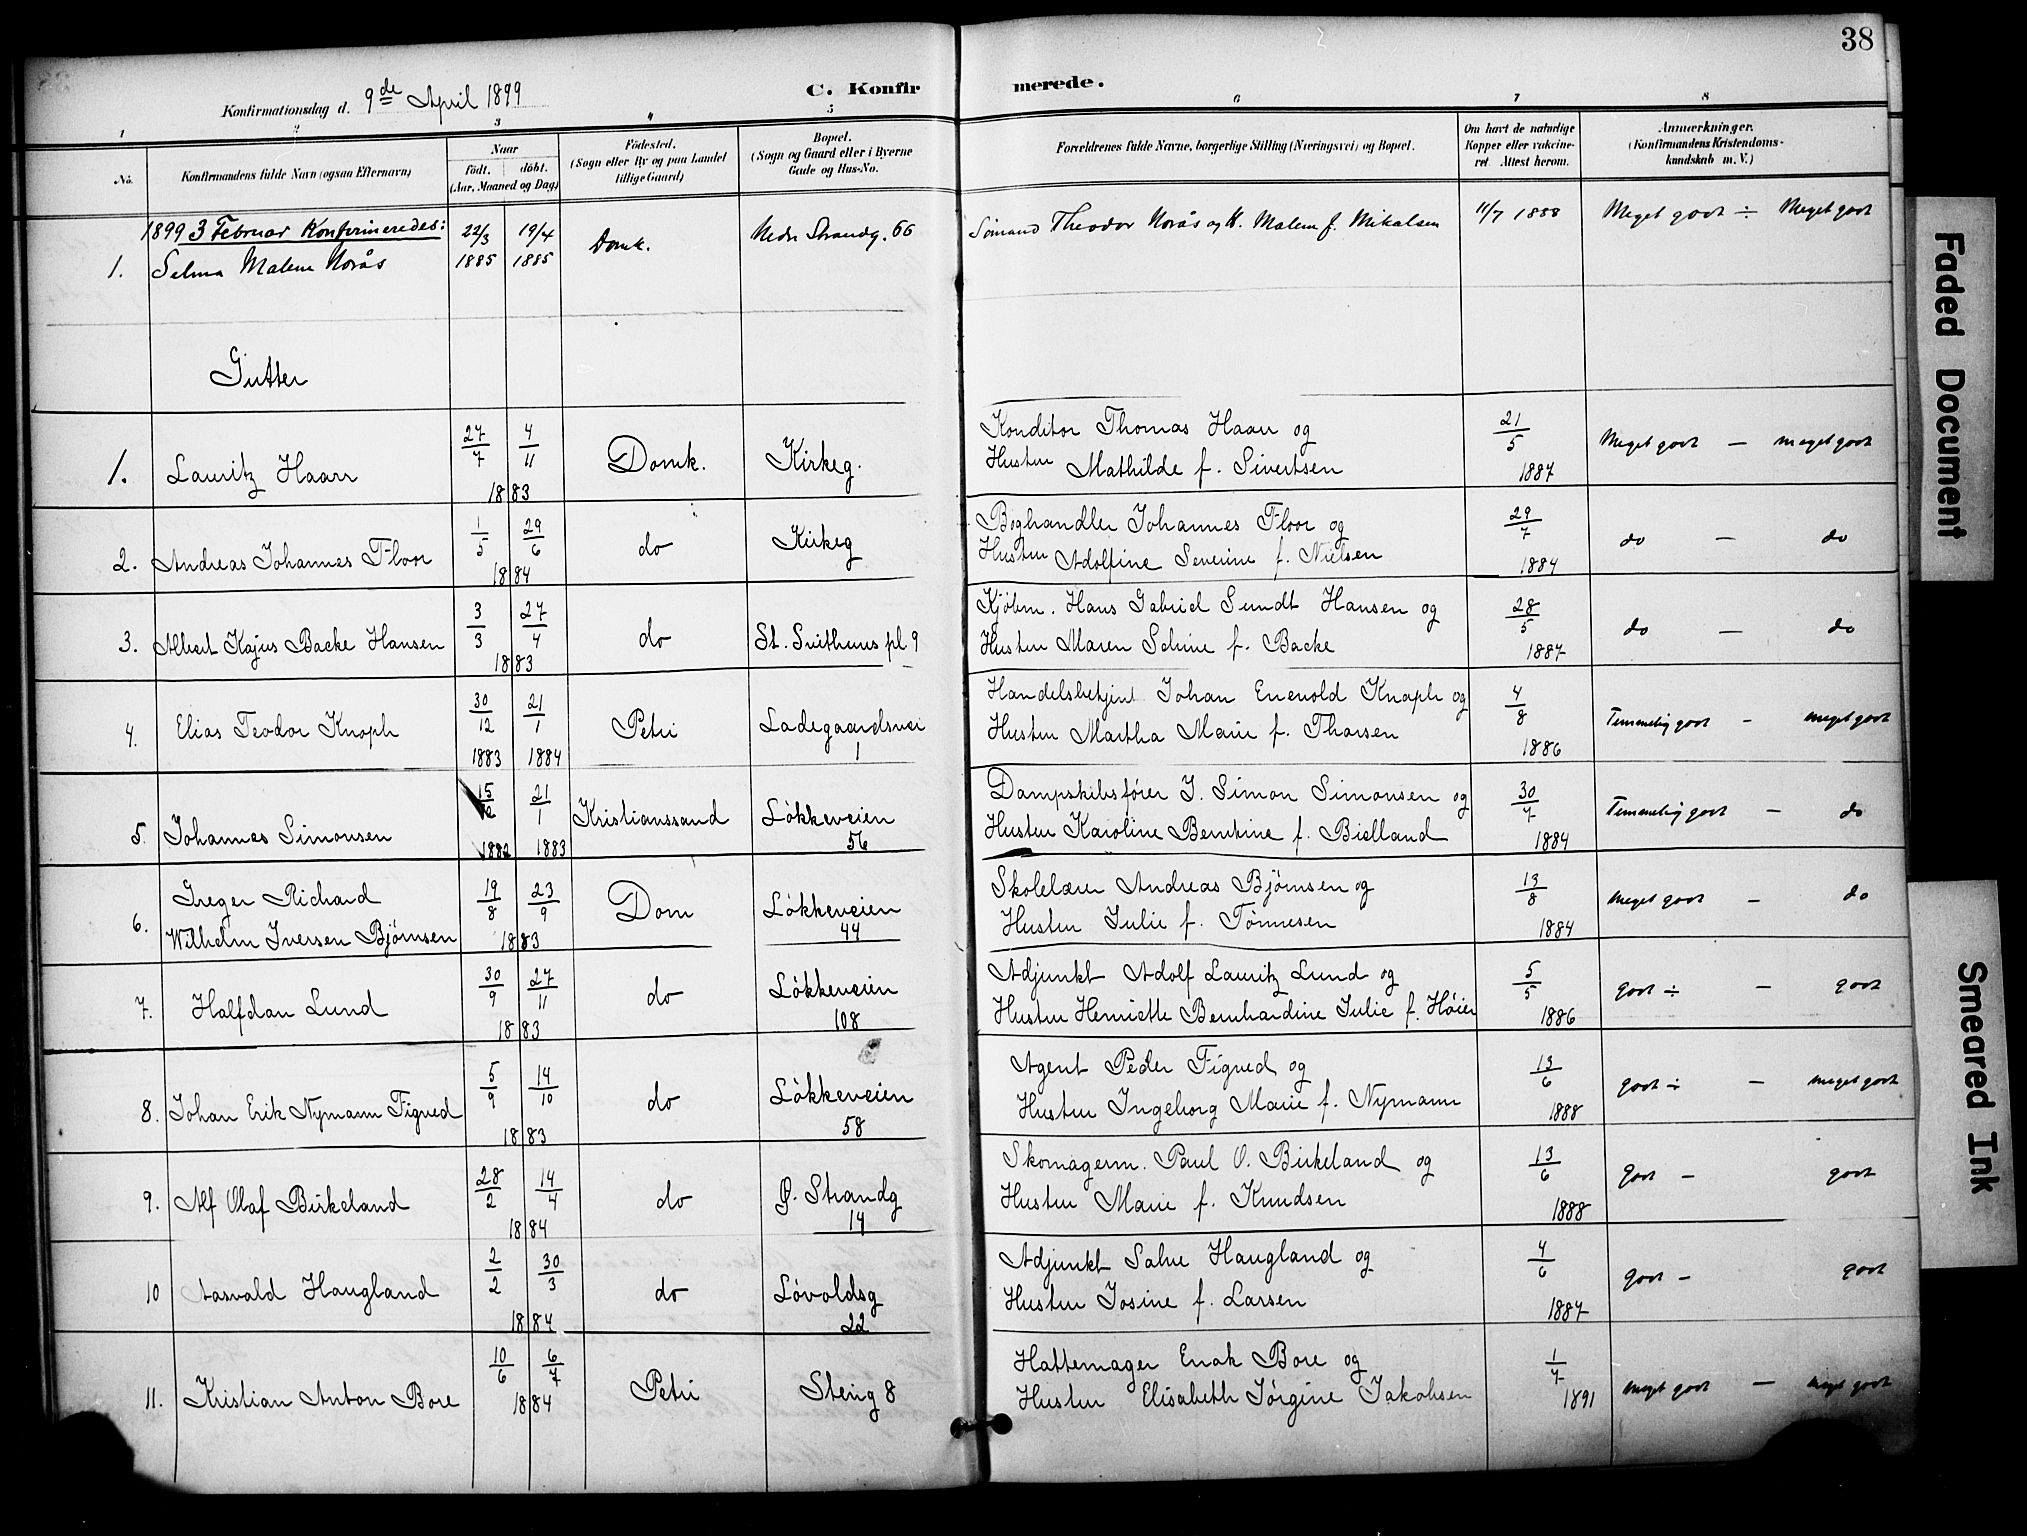 38
C. Konfirmerede.
Konfirmationsdag d. 9de April 1899
1 2 3 4 5 6 7 8
No. Konfirmandens fulde Navn (ogsaa Efternavn) Naar født. døbt. (Aar, Maaned og Dag) Fødested. (Sogn eller By og paa Landet tillige Gaard) Bopæl. (Sogn og Gaard eller i Byerne Gade og Hus-No. Forældrenes fulde Navne, borgerlige Stilling (Næringsvei) og Bopæl. Om havt de naturlige Kopper eller vakcineret. Attest herom. Anmærkninger. (Konfirmandens Kristendomskundskab m. V.)
1899 3 Februar Konfirmeredes:
1. Selma Malene Norås 22/3 1885 19/4 1885 Domk. Nedre Strandg. 66 Sømand Theodor Norås og H. Malene f. Mikalsen 11/7 1888 Meget godt ÷ Meget godt
Gutter
1. Lauritz Haarr 27/7 4/11 1883 Domk. Kirkeg. Konditor Thomas Haarr og
Hustru Mathilde f. Sivertsen 21/5 1887 Meget godt — meget godt
2. Andreas Johannes Floor 1/5 29/6 1884 do Kirkeg Boghandler Johannes Floor og
Hustru Adolfine Severine f. Nielsen 29/7 1884 do — do
3. Albert Kajus Backe Hansen 3/3 27/4 1883 do St. Svithuns pl 9 Kjøbm. Hans Gabriel Sundt Hansen og
Hustru Maren Seline f. Backe 28/5 1887 do — do
4. Elias Teodor Knoph 30/12 1883 21/1 1884 Petri Ladegaardsvei 1 Handelsbetjent Johan Enevold Knoph og
Hustru Martha Marie f. Thorsen 4/8 1886 Temmelig godt — meget godt
5. Johannes Simonsen 15/12 1882 21/1 1883 Kristianssand Løkkeveien 56 Dampskibsfører J. Simon Simonsen og
Hustru Karoline Berntine f. Bielland 30/7 1884 Temmelig godt — do
6. Greger Richard
Wilhelm Iversen Bjørnsen 19/8 23/9 1883 Dom Løkkeveien 44 Skolelærer Andreas Bjørnsen og
Hustru Julie f. Tønnesen 13/8 1884 Meget godt — do
7. Halfdan Lund 30/9 27/11 1883 do Løkkeveien 108 Adjunkt Adolf Lauritz Lund og
Hustru Henriette Bernhardine Julie f. Høier 5/5 1886 godt ÷ — godt
8. Johan Erik Nymann Figved 5/9 14/10 1883 do Løkkeveien 58 Agent Peder Figved og
Hustru Ingeborg Marie f. Nymann 13/6 1888 godt ÷ — meget godt
9. Alf Olaf Birkeland 28/2 14/4 1884 do Ø. Strandg 14 Skomagerm. Paul O. Birkeland og
Hustru Marie f. Knudsen 13/6 1888 godt — godt
10 Aasvald Haugland 2/2 30/3 1884 do Løvoldsg 22 Adjunkt Salve Haugland og
Hustru Josine f. Larsen 4/6 1887 godt — godt
11. Kristian Anton Bore 10/6 6/7 1884 Petri Steng 8 Hattemager Enok Bore og
Hustru Elisabeth Jørgine Jakobsen 1/7 1891 meget godt — meget godt
Faded Document
Smeared Ink